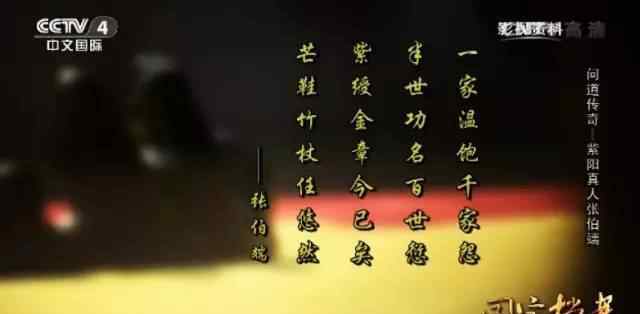 CCTV 4
中文国际
影视资料
高清
问道传奇—紫阳真人张伯端
一家温饱千家怨
半世功名百世愆
紫绶金章今已矣
芒鞋竹杖任悠然
——张伯端
国宝档案